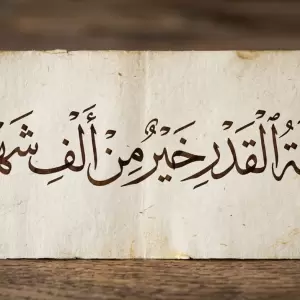 ـةُ ٱلْقَدْرِ خَيْرٌ مِنْ أَلْفِ شَهْـ